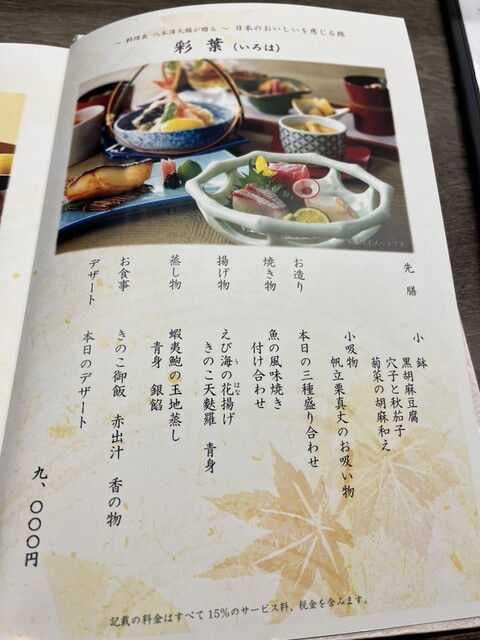 ～ 料理長 八木澤大輔が贈る ～ 日本のおいしいを感じる旅
彩葉(いろは)
先膳
小鉢
黒胡麻豆腐
穴子と秋茄子
菊菜の胡麻和え
小吸物
帆立栗真丈のお吸い物
お造り
本日の三種盛り合わせ
焼き物
魚の風味焼き
付け合わせ
揚げ物
えび海の花揚げ
うはな
きのこ天麩羅 青身
蒸し物
蝦夷鮑の玉地蒸し
青身 銀餡
お食事
きのこ御飯 赤出汁 香の物
デザート
本日のデザート
九、〇〇〇円
記載の料金はすべて15%のサービス料、税金を含みます。